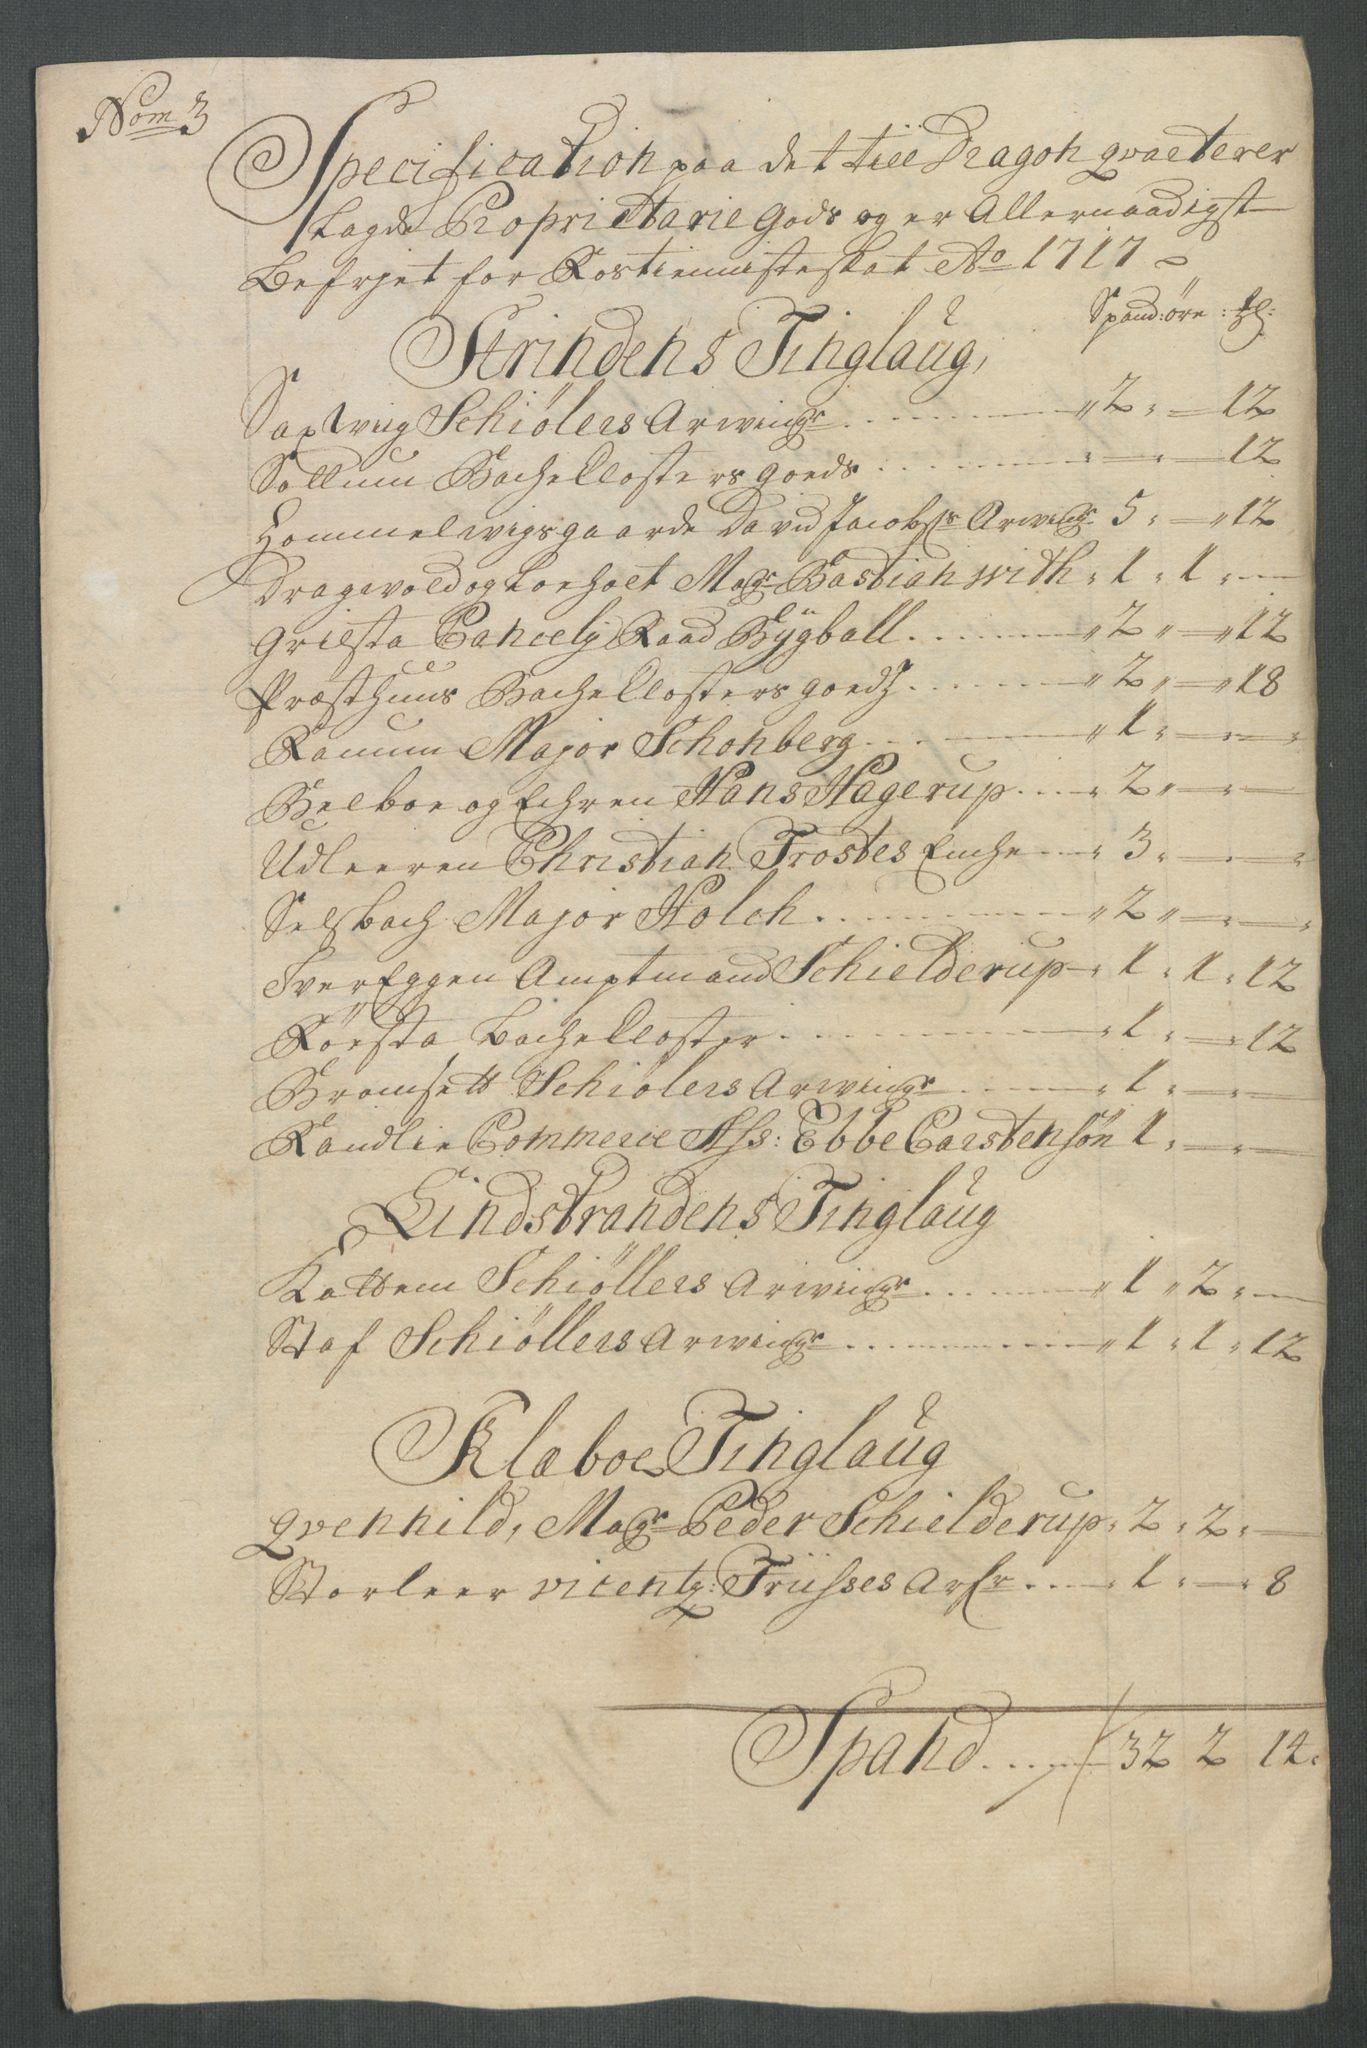 Nom 3
Specification paa det till Dragon qvaeterer
Lagde Proprietarie Gods og er Allernaadigst
Befrjet for Rostienisteskat Ao 1717
Spand: öre : [ß]l:
Strindens Tinglaug,
Saxlvig Schiölers Arwingr ..... " 2 " — 12
Sollum Bache Closters goeds ..... " — " — 12
Hommelwigsgaarde David Jacobss Arwingr 5 " — " 12
Dragwold og Loeholt Magr Bastian with " 1 " 1 " —
Grilsta Cancelij Raad Bÿgball ..... " 2 " — " 12
Præsthuus Bache Closters goeds ..... " 2 " — " 18
Ranum Major Schonberg ..... " 1 " — " —
Belboe og Echren Hans Hagerup .... " 2 " — " —
Udleeren Christian Trostes Enche ... " 3 " — " —
Selsbach Major Holch ..... " 2 " — " —
Tver Eggen Amptmand Schielderup " 1 " 1 " 12
Röesta Bache Closter ..... " 1 " — " 12
Bromsett Schiölers Arwingr ..... " 1 " — " —
Randlie Commerie Ass: Ebbe Carstensön 1 " — " —
Lindstrandens Tinglaug
Kattem Schiöllers Arwingr ..... " 1 " 2 " —
Staf Schiöllers Arwingr ..... " 1 " 1 " 12
Klæboe Tinglaug
qvennild, Magr Peder Schielderup " 2 " 2 " —
Storleer vicentz: Trüsses Arfr .... " 1 " — " 8
Spand ..... 32 2 14"